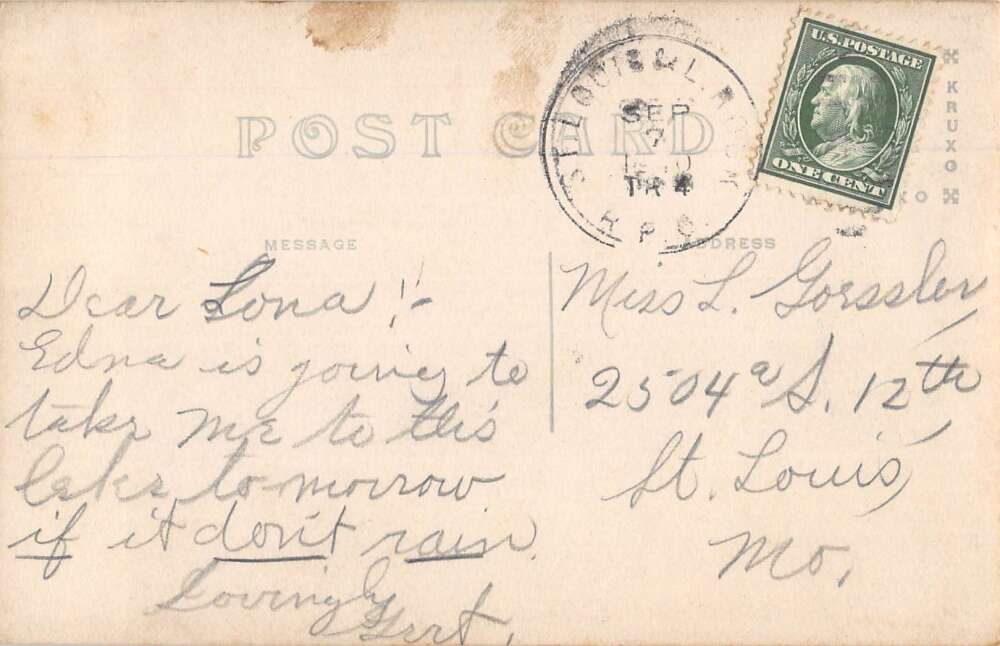 POST CARD
ST. LOUIS & L. ROCK
SEP
7
TR 4
R.P.O.
U.S. POSTAGE
ONE CENT
KRUXO
MESSAGE
ADDRESS
Dear Lona!-
Edna is going to
take me to this
lake to-morrow
if it don't rain.
Lovingly
Gert.
Miss L. Goessler
2504a S. 12th
St. Louis,
Mo.